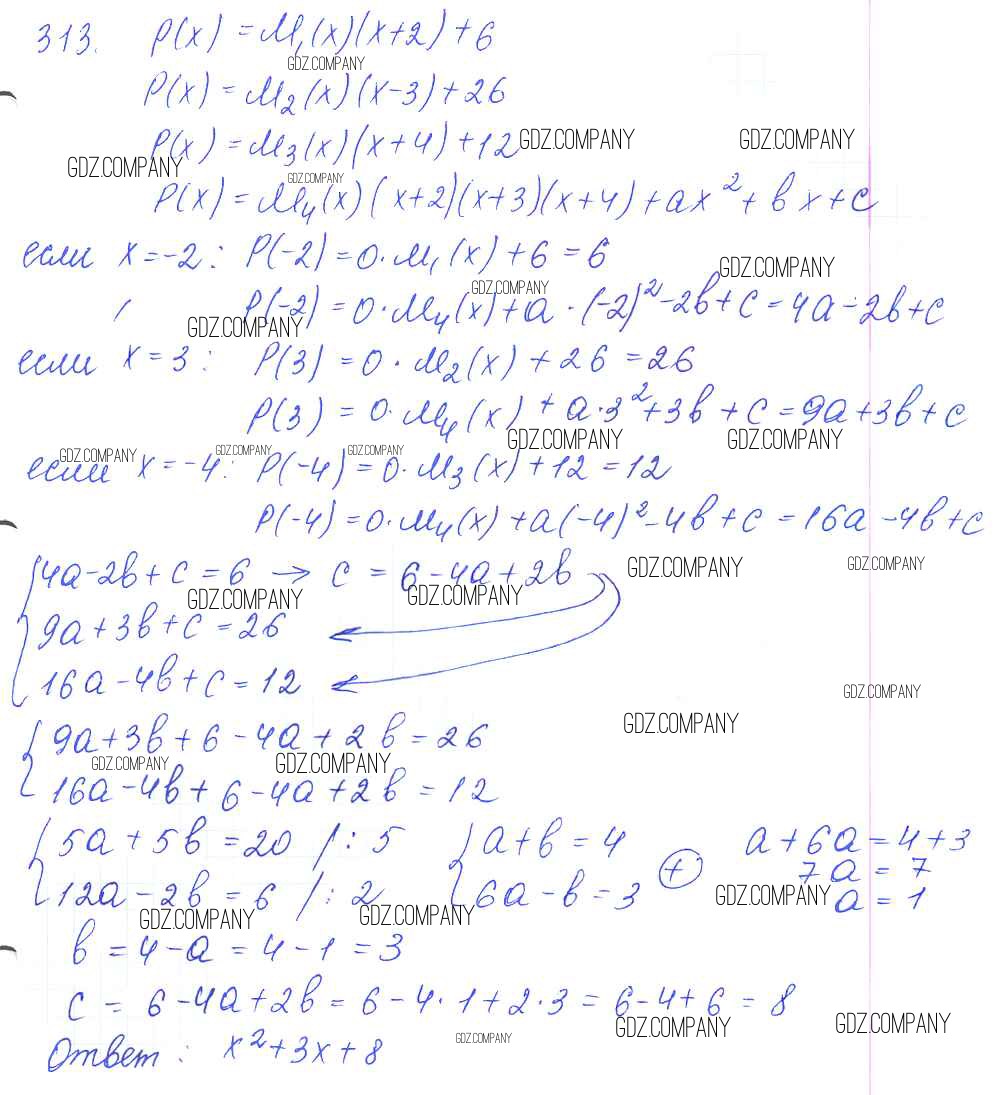 313. P(x) = M₁(x)(x+2)+6
GDZ.COMPANY
P(x) = M₂(x)(x-3)+26
P(x) = M₃(x)(x+4)+12 GDZ.COMPANY GDZ.COMPANY
GDZ.COMPANY GDZ.COMPANY
P(x) = M₄(x)(x+2)(x+3)(x+4)+ax²+bx+c
если x=-2: P(-2)=0·M₁(x)+6=6
GDZ.COMPANY GDZ.COMPANY
P(-2)=0·M₄(x)+a·(-2)²-2b+c=4a-2b+c
GDZ.COMPANY
если x=3: P(3)=0·M₂(x)+26=26
P(3)=0·M₄(x)+a·3²+3b+c=9a+3b+c
GDZ.COMPANY GDZ.COMPANY
GDZ.COMPANY GDZ.COMPANY GDZ.COMPANY
если x=-4: P(-4)=0·M₃(x)+12=12
P(-4)=0·M₄(x)+a(-4)²-4b+c=16a-4b+c
4a-2b+c=6 → c=6-4a+2b GDZ.COMPANY GDZ.COMPANY
GDZ.COMPANY GDZ.COMPANY
9a+3b+c=26
16a-4b+c=12
GDZ.COMPANY
9a+3b+6-4a+2b=26 GDZ.COMPANY
GDZ.COMPANY GDZ.COMPANY
16a-4b+6-4a+2b=12
5a+5b=20 /:5 a+b=4 a+6a=4+3
12a-2b=6 /:2 6a-b=3 + 7a=7
GDZ.COMPANY a=1
GDZ.COMPANY GDZ.COMPANY
b=4-a=4-1=3
c=6-4a+2b=6-4·1+2·3=6-4+6=8
GDZ.COMPANY GDZ.COMPANY
Ответ: x²+3x+8 GDZ.COMPANY